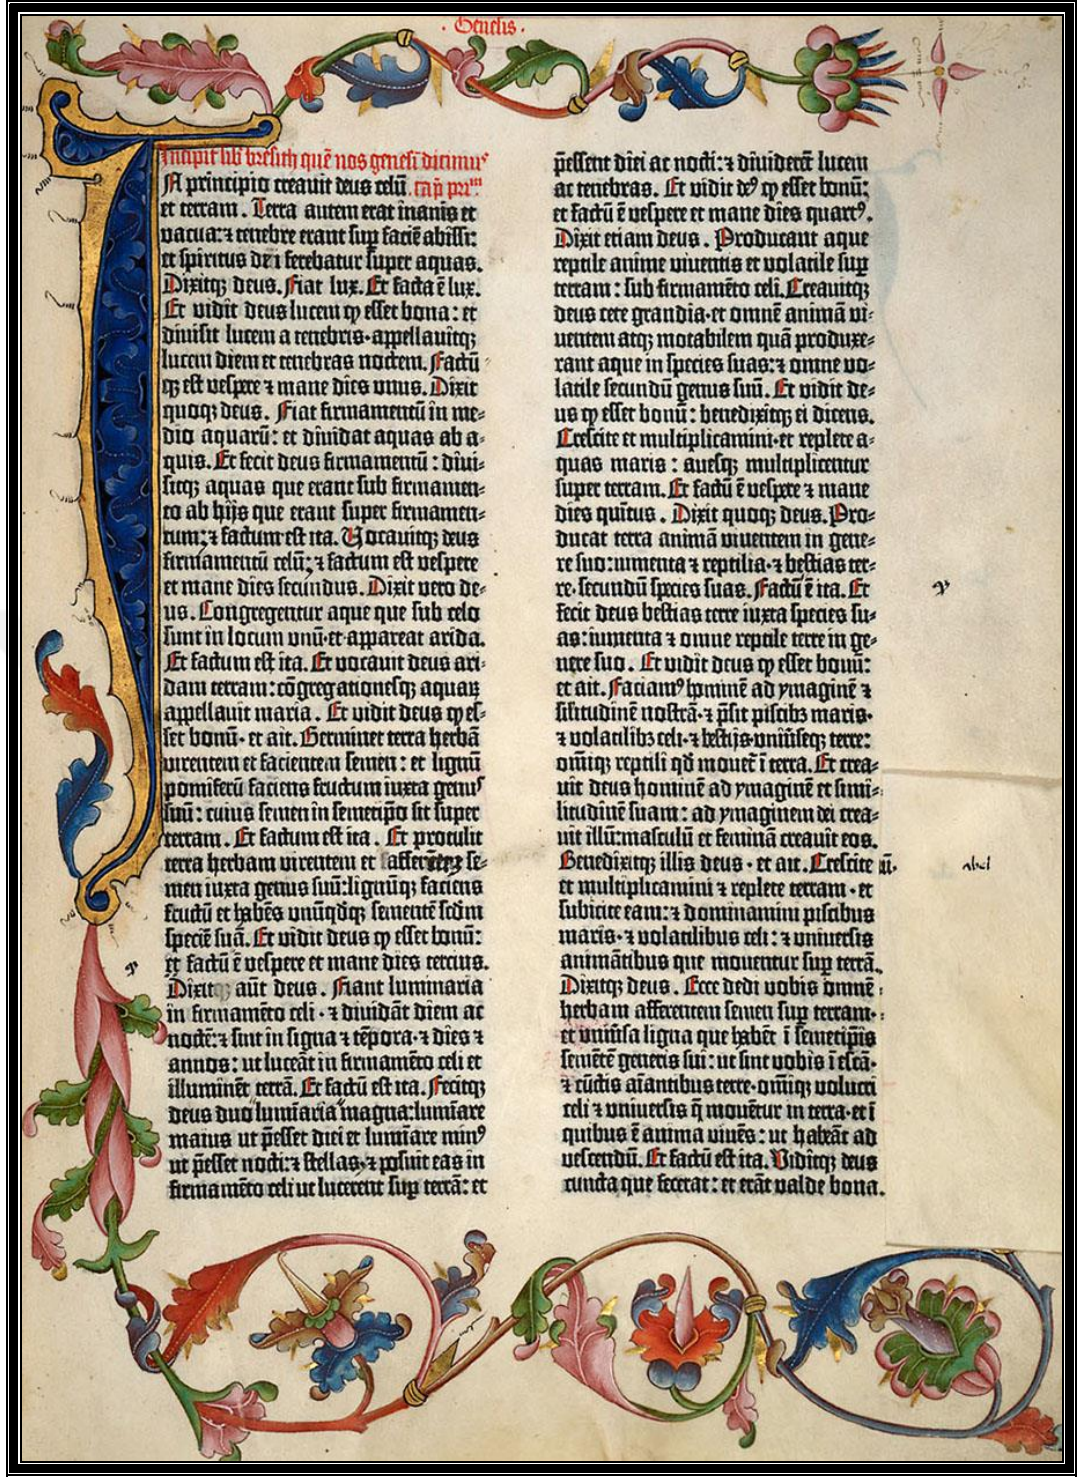 · Genesis ·
Incipit lib̄ bresith quē nos genesī dicimus
A principio creavit deus celū cap̄ prim
et terram. Terra autem erat inanis et
vacua: ⁊ tenebre erant sup faciē abissi:
et spiritus dei ferebatur super aquas.
Dixitq; deus. Fiat lux. Et facta ē lux.
Et vidit deus lucem ꝙ esset bona: et
divisit lucem a tenebris · appellavitq;
lucem diem et tenebras noctem. Factū
q; est vespere ⁊ mane dies unus. Dixit
quoq; deus. Fiat firmamentū in me-
dio aquarū: et dividat aquas ab a-
quis. Et fecit deus firmamentū: divi-
sitq; aquas que erant sub firmamen-
to ab hijs que erant super firmamen-
tum: ⁊ factum est ita. Vocavitq; deus
firmamentū celū: ⁊ factum est vespere
et mane dies secundus. Dixit vero de-
us. Congregentur aque que sub celo
sunt in locum unū · et appareat arida.
Et factum est ita. Et vocavit deus ari-
dam terram: cōgregationesq; aquaꝝ
appellavit maria. Et vidit deus ꝙ es-
set bonū · et ait. Germinet terra herbā
virentem et facientem semen: et lignū
pomiferū faciens fructum iuxta genus
suū: cuius semen in semetip̄o sit super
terram. Et factum est ita. Et protulit
terra herbam virentem et afferētez se-
men iuxta genus suū: lignūq; faciens
fructū et habēs unūqdq; sementē scdm
speciē suā. Et vidit deus ꝙ esset bonū:
et factū ē vespere et mane dies tercius.
Dixitq; aūt deus. Fiant luminaria
in firmamēto celi · ⁊ dividāt diem ac
noctē: ⁊ sint in signa ⁊ tēpora · ⁊ dies ⁊
annos: ut luceāt in firmamēto celi et
illuminēt terrā. Et factū est ita. Fecitq;
deus duo lumīaria magna: lumīare
maius ut p̄esset diei et lumīare minꝰ
ut p̄esset nocti: ⁊ stellas · ⁊ posuit eas in
firmamēto celi ut lucerent sup terrā: et
p̄essent diei ac nocti: ⁊ dividerēt lucem
ac tenebras. Et vidit deꝰ ꝙ esset bonū:
et factū ē vespere et mane dies quartꝰ.
Dixit etiam deus. Producant aque
reptile anime viventis et volatile sup
terram: sub firmamēto celi. Creavitq;
deus cete grandia · et omnē animā vi-
ventem atq; motabilem quā produxe-
rant aque in species suas: ⁊ omne vo-
latile secundū genus suū. Et vidit de-
us ꝙ esset bonū: benedixitq; ei dicens.
Crescite et multiplicamini · et replete a-
quas maris: avesq; multiplicentur
super terram. Et factū ē vespere ⁊ mane
dies quītus. Dixit quoq; deus. Pro-
ducat terra animā viventem in gene-
re suo: iumenta ⁊ reptilia · ⁊ bestias ter-
re · secundū species suas. Factū ē ita. Et
fecit deus bestias terre iuxta species su-
as: iumenta ⁊ omne reptile terre in ge-
nere suo. Et vidit deus ꝙ esset bonū:
et ait. Faciamꝰ hominē ad ymaginē ⁊
silitudinē nostrā · ⁊ p̄sit piscibz maris ·
⁊ volatilibz celi · ⁊ bestijs · univ̄seq; terre:
omīq; reptili qd movet̄ ī terra. Et crea-
vit deus hominē ad ymaginē et simi-
litudinē suam: ad ymaginem dei crea-
vit illū: masculū et feminā creavit eos.
Benedixitq; illis deus · et ait. Crescite
et multiplicamini ⁊ replete terram · et
subicite eam: ⁊ dominamini piscibus
maris · ⁊ volatilibus celi: ⁊ universis
animātibus que moventur sup terrā.
Dixitq; deus. Ecce dedi vobis omnē
herbam afferentem semen sup terram ·
et univ̄sa ligna que habēt ī semetip̄is
semētē generis sui: ut sint vobis ī escā ·
⁊ cūctis aīantibus terre · omīq; volucri
celi ⁊ universis q̄ movētur in terra · et ī
quibus ē anima vivēs: ut habeāt ad
vescendū. Et factū est ita. Viditq; deus
cuncta que fecerat: et erāt valde bona.
abel